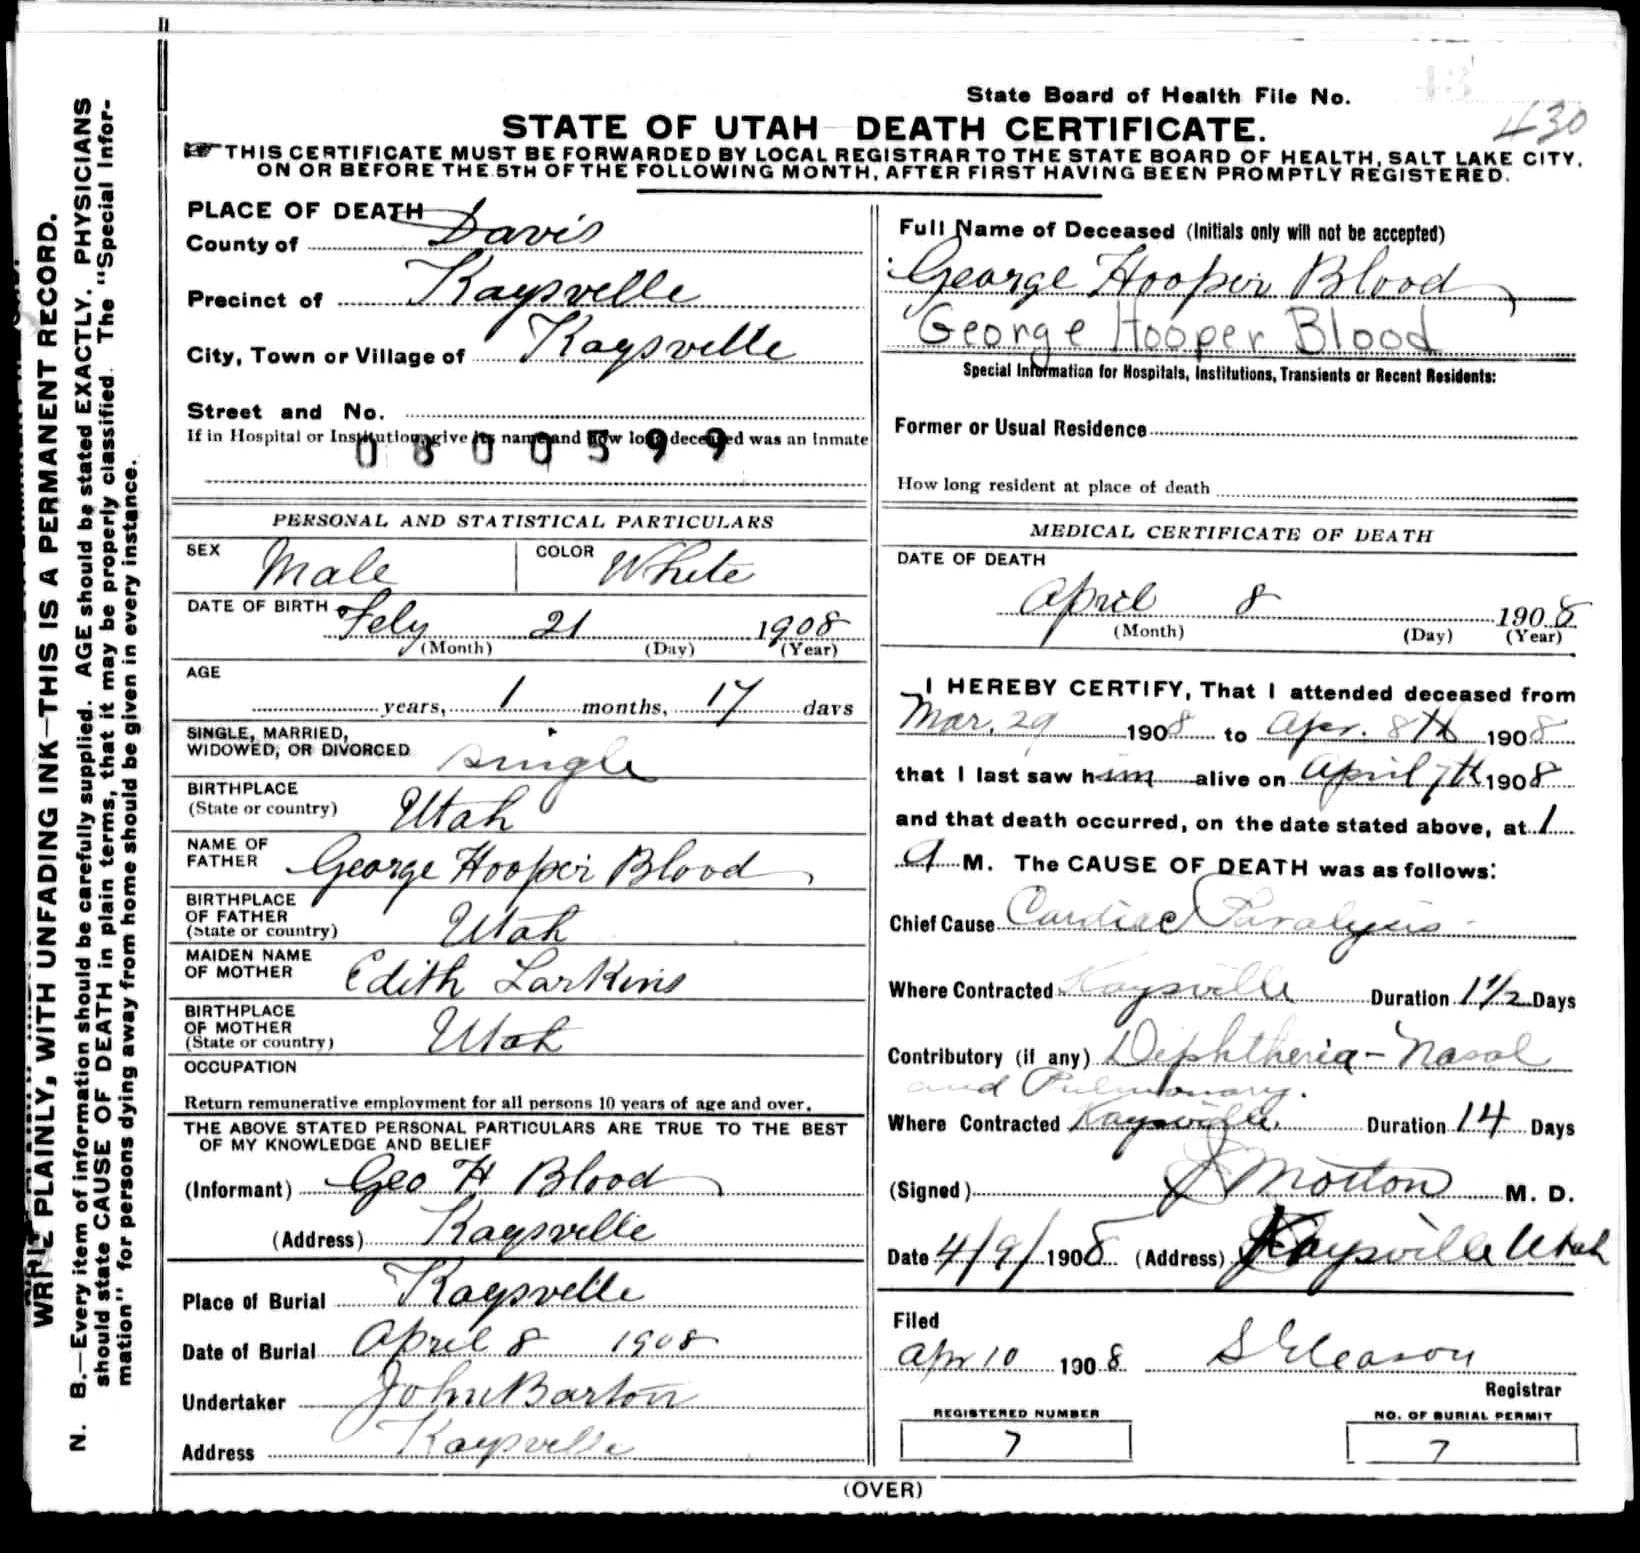 State Board of Health File No.
430
STATE OF UTAH DEATH CERTIFICATE.
THIS CERTIFICATE MUST BE FORWARDED BY LOCAL REGISTRAR TO THE STATE BOARD OF HEALTH, SALT LAKE CITY,
ON OR BEFORE THE 5TH OF THE FOLLOWING MONTH, AFTER FIRST HAVING BEEN PROMPTLY REGISTERED.
WRITE PLAINLY, WITH UNFADING INK—THIS IS A PERMANENT RECORD.
N. B.—Every item of information should be carefully supplied. AGE should be stated EXACTLY. PHYSICIANS
should state CAUSE OF DEATH in plain terms, that it may be properly classified. The "Special Infor-
mation" for persons dying away from home should be given in every instance.
PLACE OF DEATH
County of Davis
Precinct of Kaysville
City, Town or Village of Kaysville
Street and No.
If in Hospital or Institution, give its name and how long deceased was an inmate
0800599
PERSONAL AND STATISTICAL PARTICULARS
SEX Male COLOR White
DATE OF BIRTH Feby 21 1908
(Month) (Day) (Year)
AGE
years, 1 months, 17 days
SINGLE, MARRIED,
WIDOWED, OR DIVORCED single
BIRTHPLACE
(State or country) Utah
NAME OF
FATHER George Hooper Blood
BIRTHPLACE
OF FATHER
(State or country) Utah
MAIDEN NAME
OF MOTHER Edith Larkins
BIRTHPLACE
OF MOTHER
(State or country) Utah
OCCUPATION
Return remunerative employment for all persons 10 years of age and over.
THE ABOVE STATED PERSONAL PARTICULARS ARE TRUE TO THE BEST
OF MY KNOWLEDGE AND BELIEF
(Informant) Geo H Blood
(Address) Kaysville
Place of Burial Kaysville
Date of Burial April 8 1908
Undertaker John Barton
Address Kaysville
Full Name of Deceased (Initials only will not be accepted)
George Hooper Blood
George Hooper Blood
Special Information for Hospitals, Institutions, Transients or Recent Residents:
Former or Usual Residence
How long resident at place of death
MEDICAL CERTIFICATE OF DEATH
DATE OF DEATH
April 8 1908
(Month) (Day) (Year)
I HEREBY CERTIFY, That I attended deceased from
Mar. 29 1908 to Apr. 8th 1908
that I last saw him alive on April 7th 1908
and that death occurred, on the date stated above, at 1
A M. The CAUSE OF DEATH was as follows:
Chief Cause Cardiac Paralysis
Where Contracted Kaysville Duration 1 1/2 Days
Contributory (if any) Diphtheria - Nasal
and Pulmonary.
Where Contracted Kaysville. Duration 14 Days
(Signed) Morton M. D.
Date 4/9/1908 (Address) Kaysville Utah
Filed
Apr 10 1908 S Gleason
Registrar
REGISTERED NUMBER
7
NO. OF BURIAL PERMIT
7
(OVER)